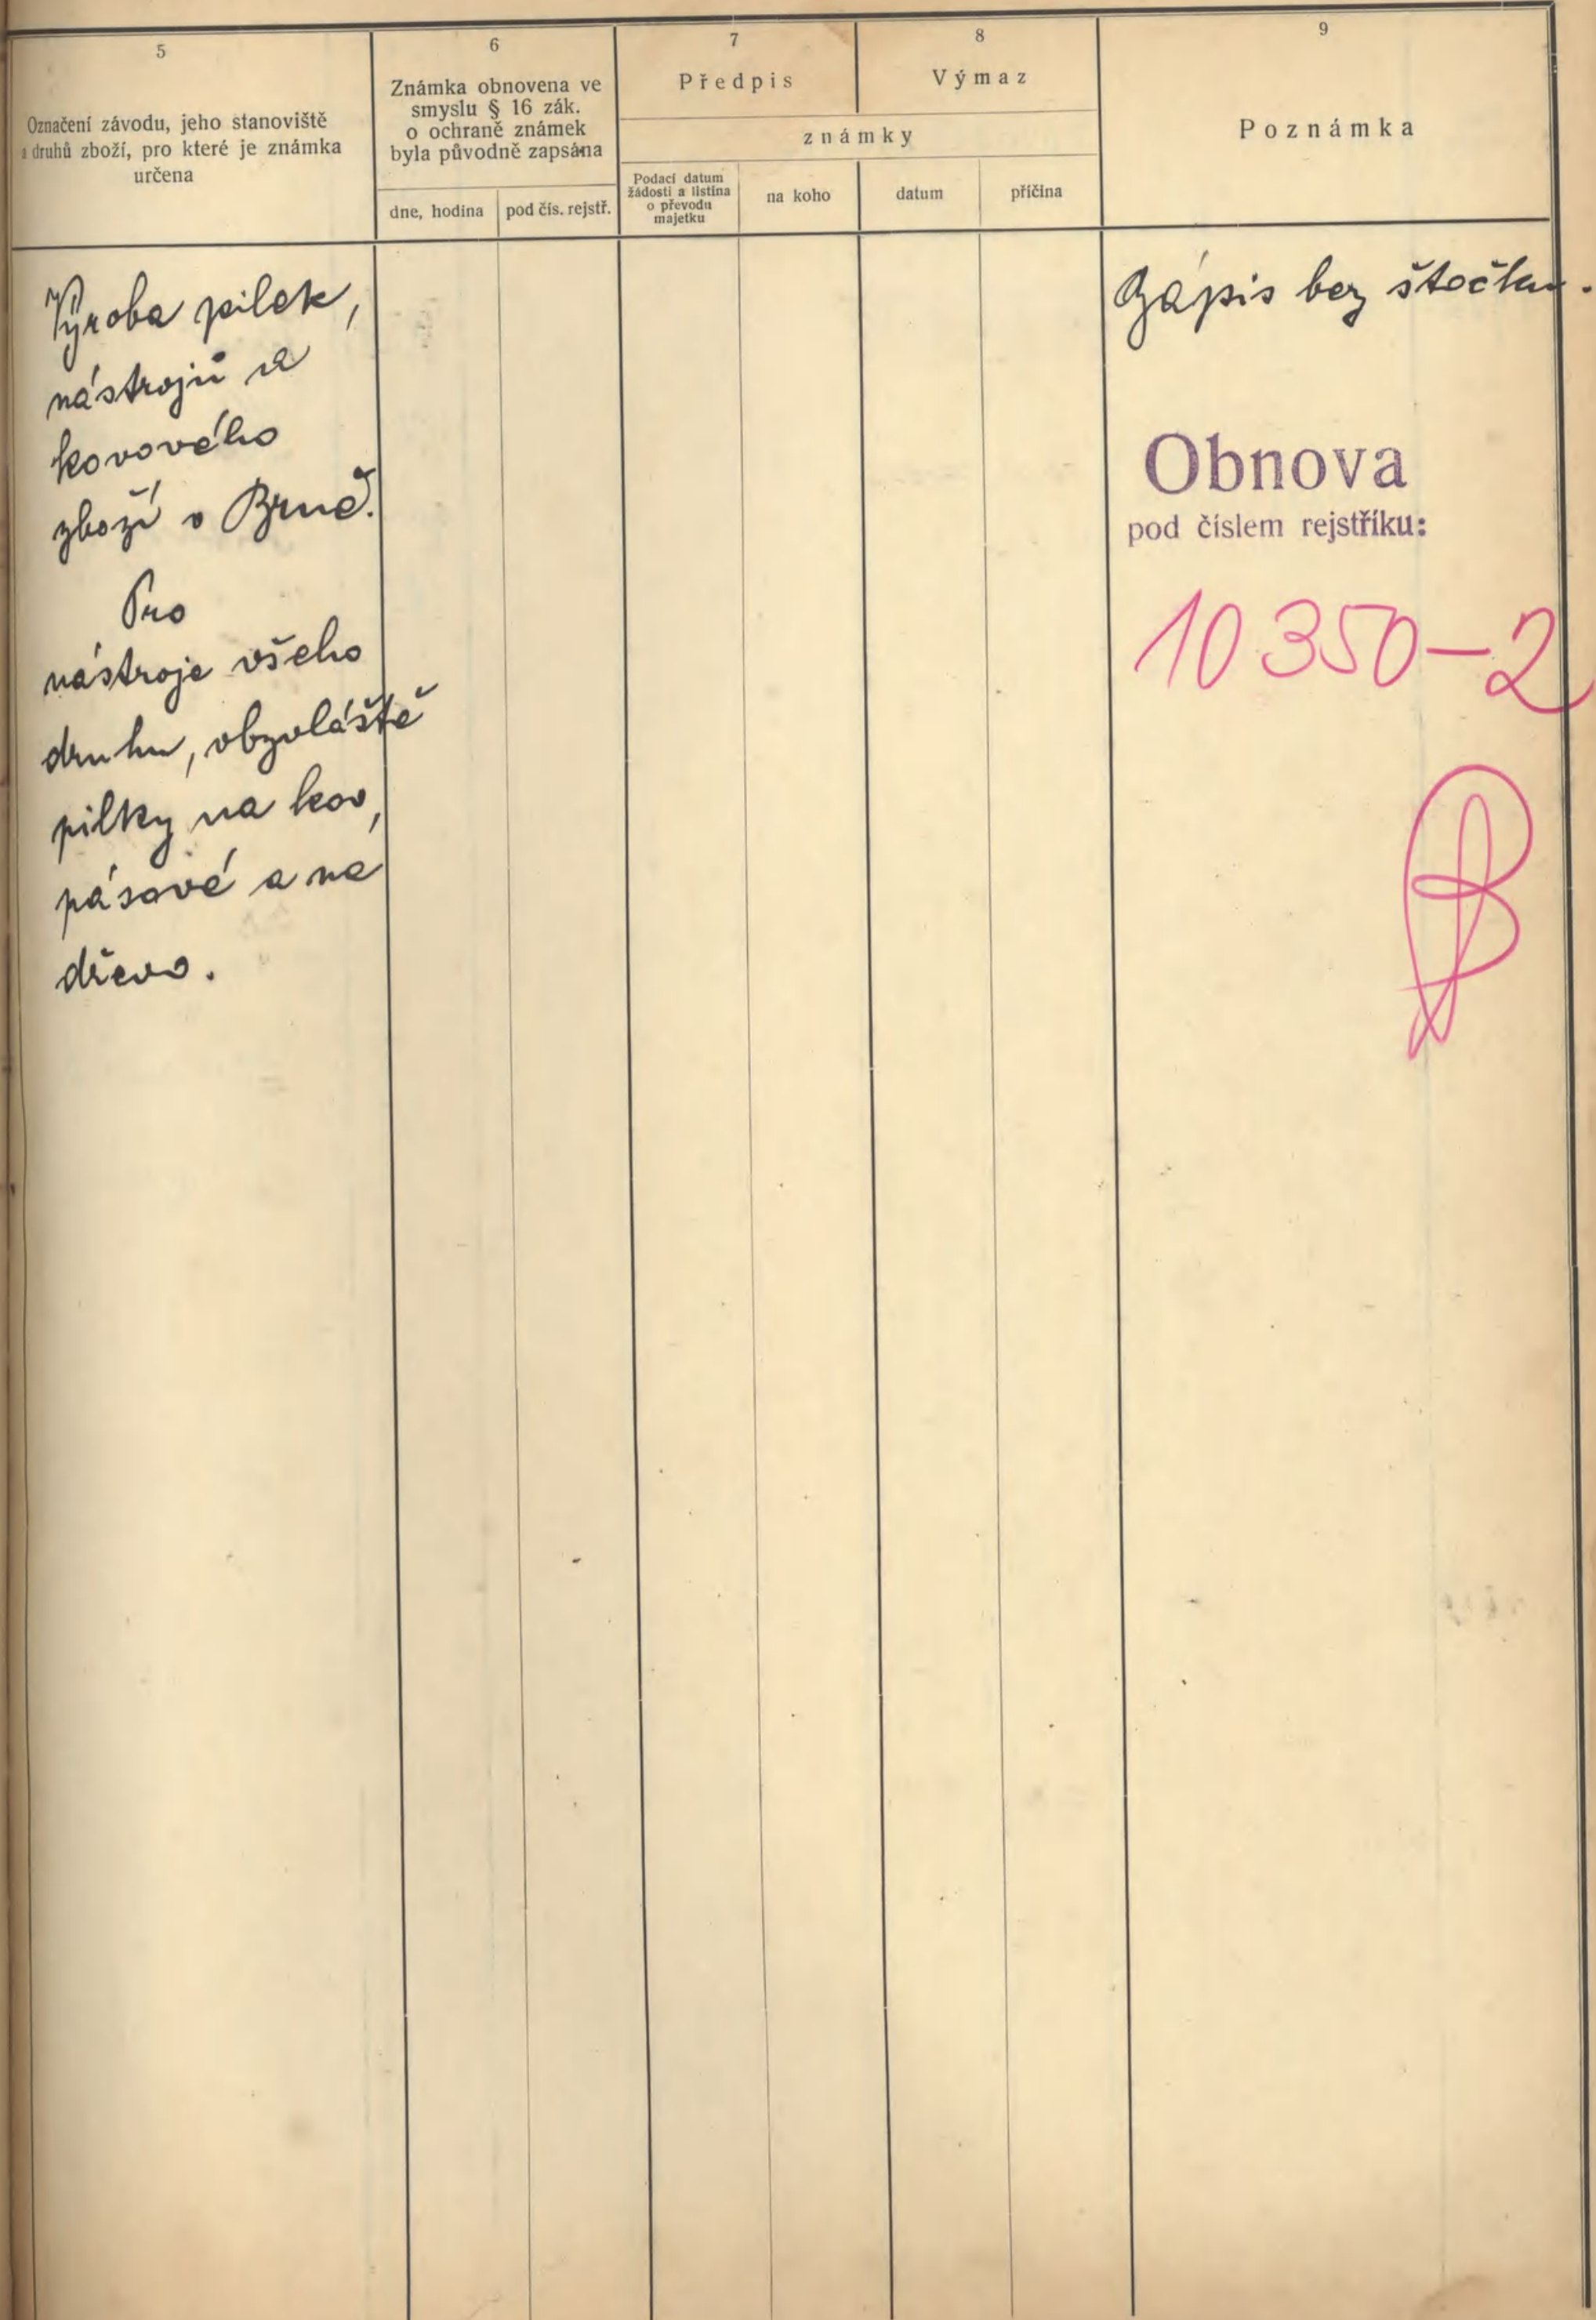 5
Označení závodu, jeho stanoviště
a druhů zboží, pro které je známka
určena
6
Známka obnovena ve
smyslu § 16 zák.
o ochraně známek
byla původně zapsána
dne, hodina
pod čís. rejstř.
7
Předpis
8
Výmaz
známky
Podací datum
žádosti a listina
o převodu
majetku
na koho
datum
příčina
9
Poznámka
Výroba pilek,
nástrojů a
kovového
zboží v Brně.
Pro
nástroje všeho
druhu, obzvláště
pilky na kov,
pásové a na
dřevo.
Zápis bez štočku.
Obnova
pod číslem rejstříku:
10350-2